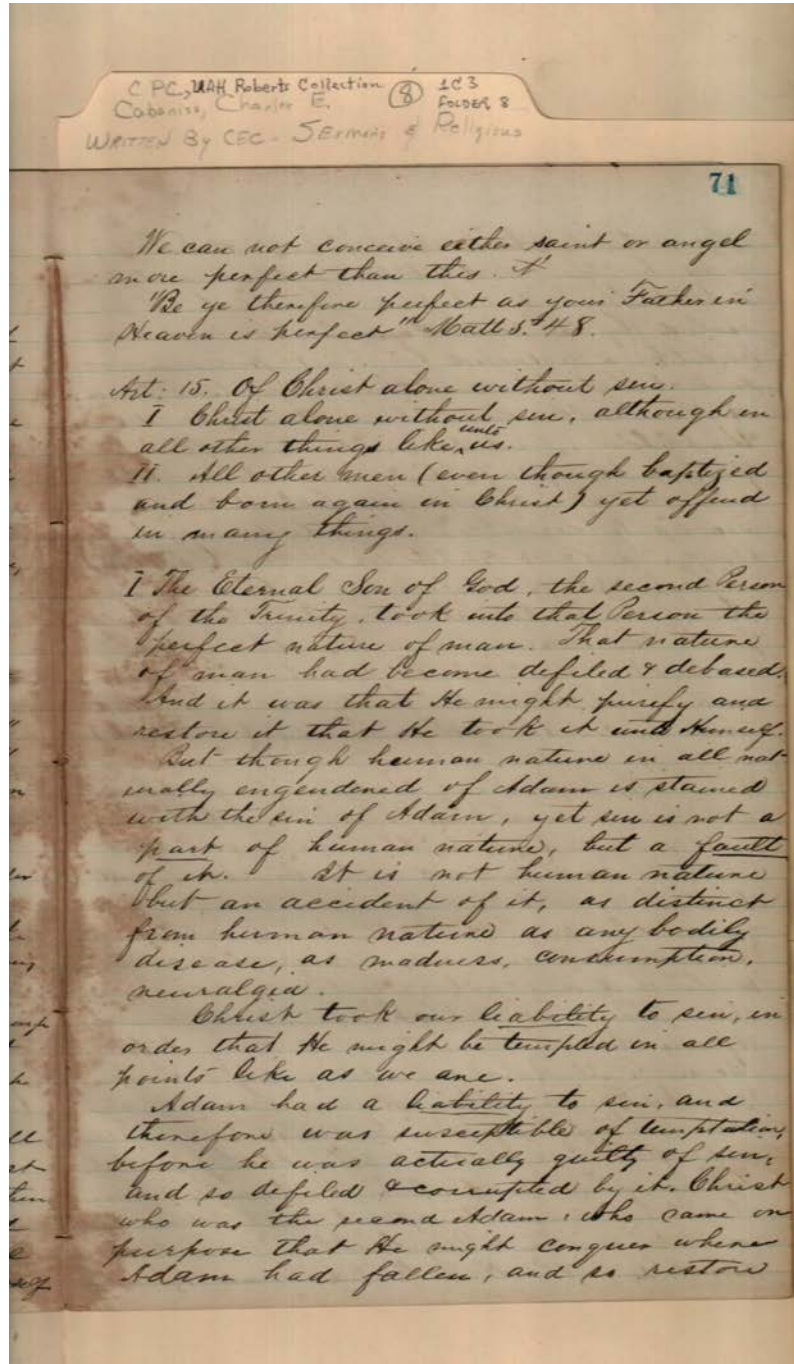 C PC, UAH Roberts Collection 8 1C3
Cabaniss, Charles E. FOLDER 8
WRITTEN By CEC - SErmons & Religious
71
We can not conceive either saint or angel
more perfect than this.
"Be ye therefore perfect as your Father in
Heaven is perfect" Matt 5. 48.
Art: 15. Of Christ alone without sin.
I Christ alone without sin, although in
all other things like unto us.
II. All other men (even though baptized
and born again in Christ) yet offend
in many things.
I The Eternal Son of God, the second Person
of the Trinity, took into that Person the
perfect nature of man. That nature
of man had become defiled & debased.
And it was that He might purify and
restore it that He took it unto Himself.
But though human nature in all nat-
urally engendered of Adam is stained
with the sin of Adam, yet sin is not a
part of human nature, but a fault
of it. It is not human nature
but an accident of it, as distinct
from human nature as any bodily
disease, as madness, consumption,
neuralgia.
Christ took our liability to sin, in
order that He might be tempted in all
points like as we are.
Adam had a liability to sin, and
therefore was susceptible of temptation,
before he was actually guilty of sin,
and so defiled & corrupted by it. Christ
who was the second Adam, who came on
purpose that He might conquer where
Adam had fallen, and so restore